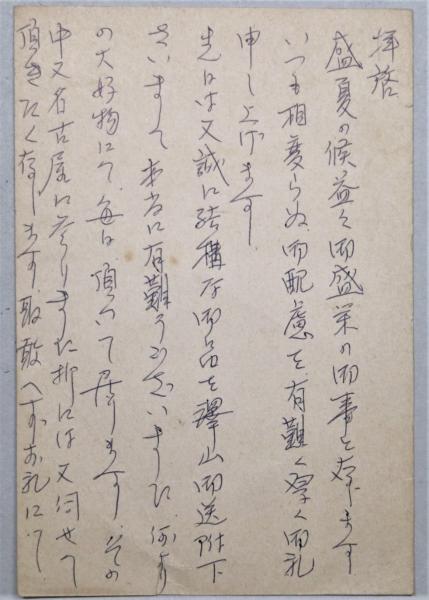 拝啓
盛夏の候益々御盛栄の御事と存じます
いつも相変らぬ御配慮を有難く厚く御礼
申し上げます
先日は又誠に結構な御品を澤山御送附下
さいまして本当に有難うございました 何より
の大好物にて毎日頂いて居ります その
中又名古屋に参りました折には又伺せて
頂きたく存じます 取敢へずお礼にて